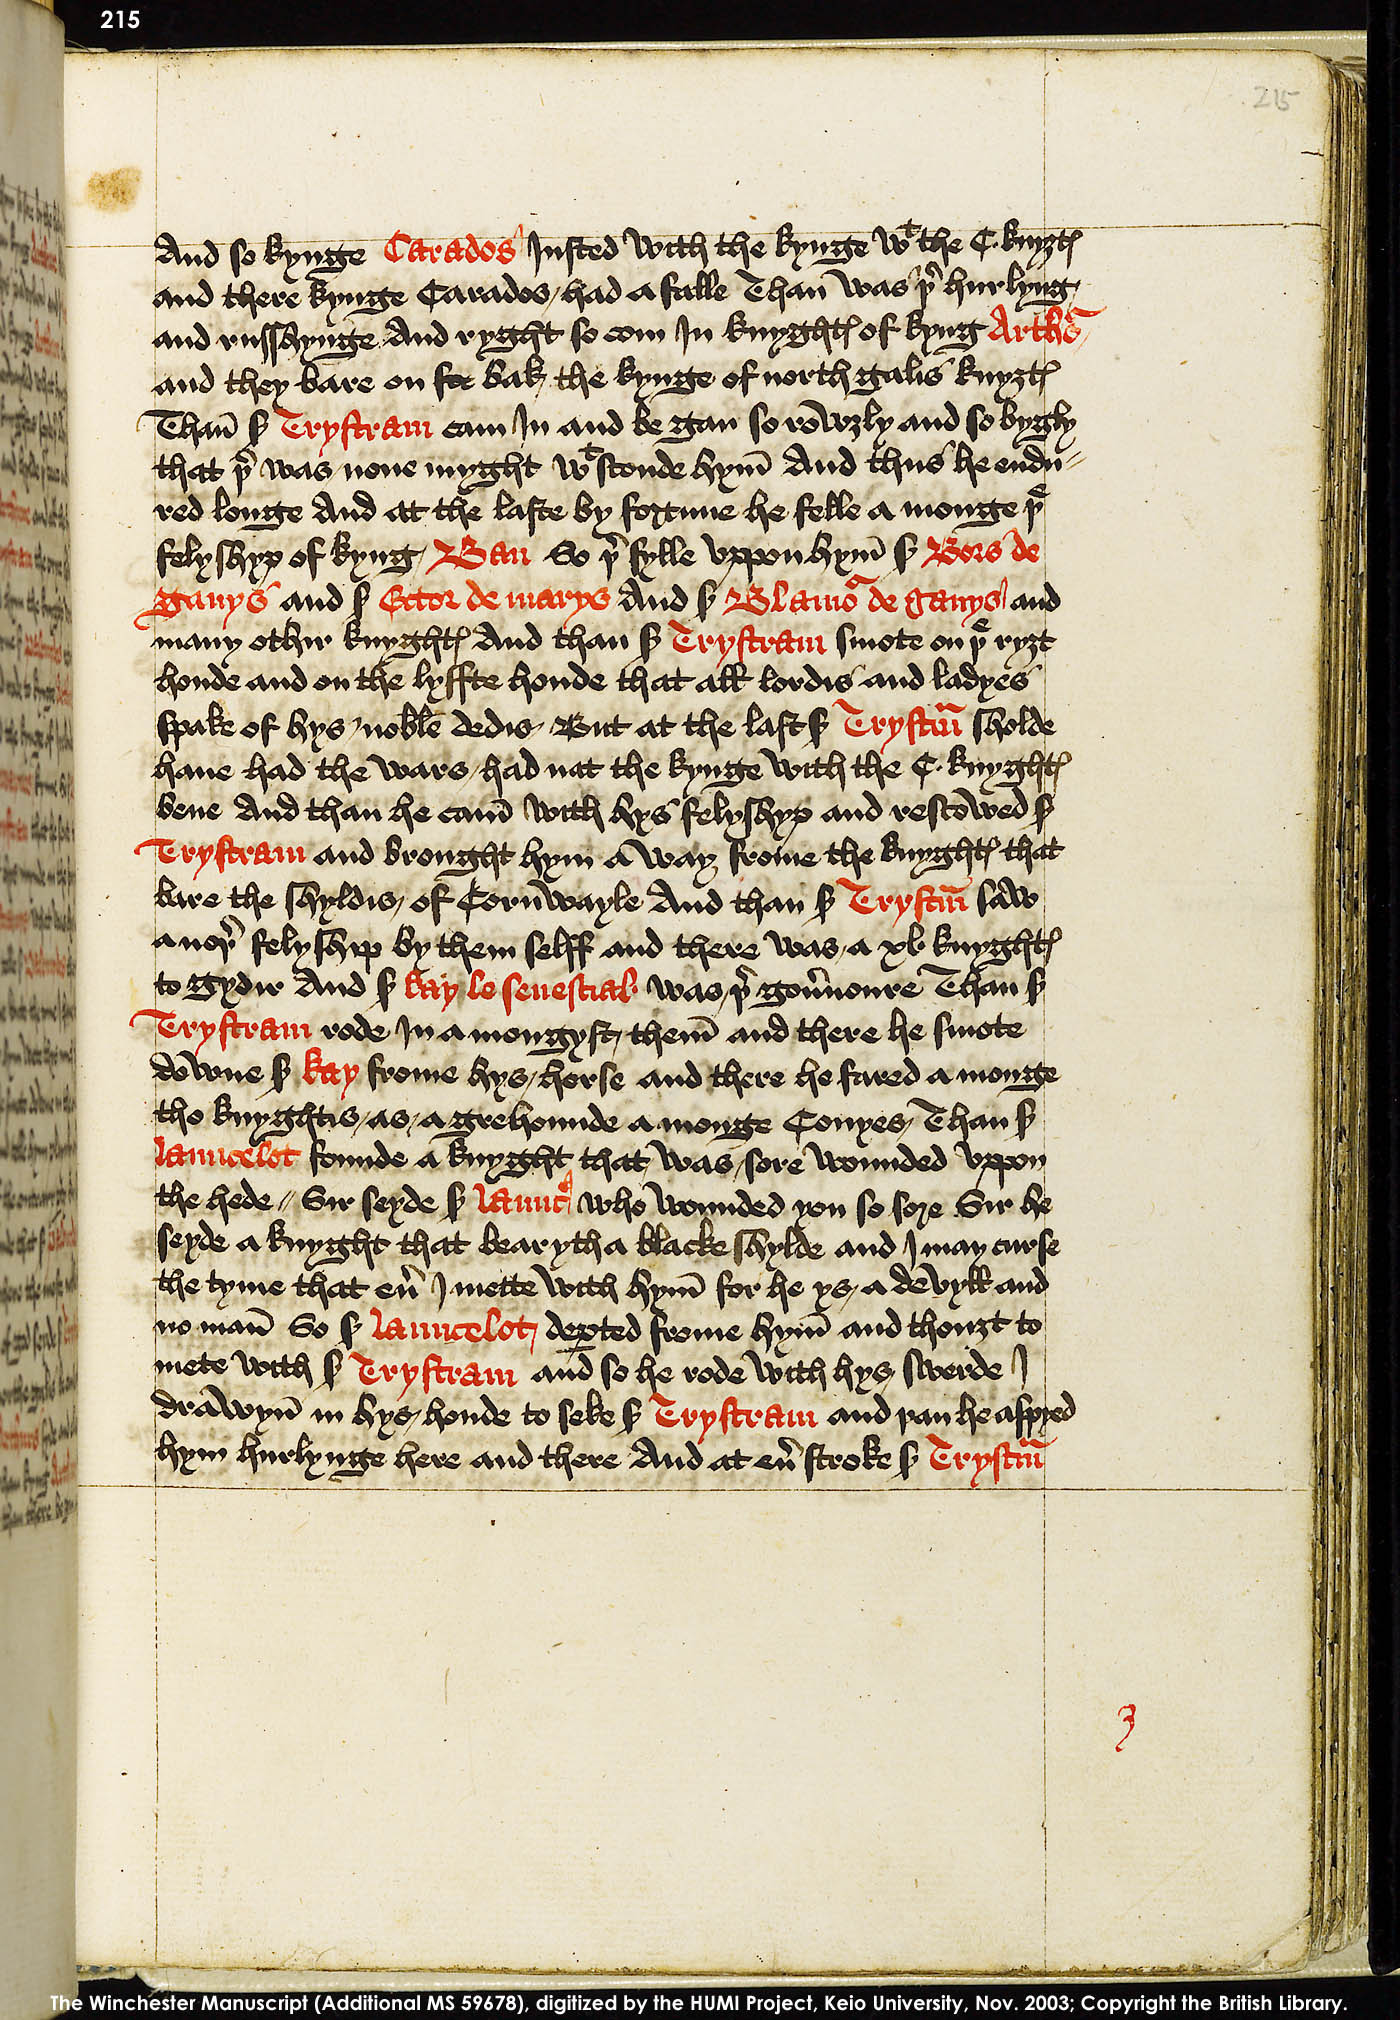 215
215
And so kynge Carados Justed with the kynge wt the C. knyztꝭ
and there kynge Carados / had a falle Than̄ was þr hurlyng /
and russhynge And ryght so com In knyghtꝭ of kyng Arthrs /
and they bare on bak / the kynge of north galis knyztꝭ
Than̄ sr Trystram cam In and be gan so rowzly and so bygly
that þr was none myght wt stonde hym̄ And thus he endu-
red longe And at the laste by fortune he felle a monge þe
felyshyp of kyng / Ban So þr fylle vppon hym̄ sr Bors de
ganys and sr Ector de marys And sr Blamor de ganys and
many othir knyghtꝭ And than sr Trystram smote on þe ryzt
honde and on the lyffte honde that all lordis and ladyes
spake of hys / noble dedis / But at the last sr Trystrm̄ sholde
haue had the wars / had nat the kynge with the C. knyghtꝭ
bene And than he cam̄ with hys felyshyp and rescowed sr
Trystram and brought hym a way frome the knyghtꝭ that
bare the shyldis / of Cornwayle And than sr Trystrm̄ saw
a noþr felyship by them selff and there was / a xl knyghtꝭ
to gydir And sr kay le seneschal was / þr gou̅noure Than sr
Trystram rode In a mongyst / them̄ and there he smote
downe sr kay frome hys / horse and there he fared a monge
tho knyghtis / as / a grehounde a monge Conyes / Than sr
launcelot founde a knyght that was / sore wounded vppon
the hede // Sir seyde sr launc̄ who wounded you so sore Sir he
seyde a knyght that bearyth a blacke shylde and I may curse
the tyme that eu̅ I mette with hym̄ for he ys / a devyll and
no man̄ So sr launcelot / deꝑted frome hym̄ and thouzt to
mete with sr Trystram and so he rode with hys / swerde I
drawyn̄ in hys / honde to seke sr Trystram and þan he aspyed
hym hurlynge here and there And at eu̅ stroke sr Trystrm̄
The Winchester Manuscript (Additional MS 59678), digitized by the HUMI Project, Keio University, Nov. 2003; Copyright the British Library.